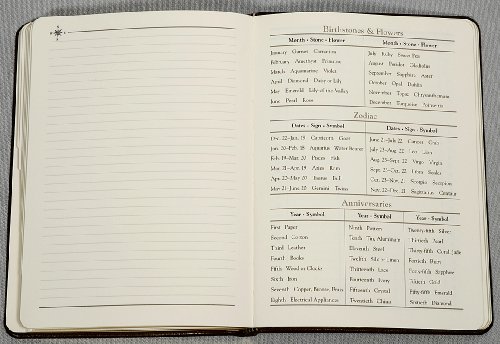 Birthstones & Flowers
Month - Stone - Flower
January Garnet Carnation
February Amethyst Primrose
March Aquamarine Violet
April Diamond Daisy or Lily
May Emerald Lily-of-the-Valley
June Pearl Rose
Month - Stone - Flower
July Ruby Sweet Pea
August Peridot Gladiolus
September Sapphire Aster
October Opal Dahlia
November Topaz Chrysanthemum
December Turquoise Poinsettia
Zodiac
Dates - Sign - Symbol
Dec. 22-Jan. 19 Capricorn Goat
Jan. 20-Feb. 18 Aquarius Water Bearer
Feb. 19-Mar. 20 Pisces Fish
Mar. 21-Apr. 19 Aries Ram
Apr. 20-May 20 Taurus Bull
May 21-June 20 Gemini Twins
Dates - Sign - Symbol
June 21-July 22 Cancer Crab
July 23-Aug. 22 Leo Lion
Aug. 23-Sept. 22 Virgo Virgin
Sept. 23-Oct. 22 Libra Scales
Oct. 23-Nov. 21 Scorpio Scorpion
Nov. 22-Dec. 21 Sagittarius Centaur
Anniversaries
Year - Symbol
First Paper
Second Cotton
Third Leather
Fourth Books
Fifth Wood or Clocks
Sixth Iron
Seventh Copper, Bronze, Brass
Eighth Electrical Appliances
Year - Symbol
Ninth Pottery
Tenth Tin, Aluminum
Eleventh Steel
Twelfth Silk or Linen
Thirteenth Lace
Fourteenth Ivory
Fifteenth Crystal
Twentieth China
Year - Symbol
Twenty-fifth Silver
Thirtieth Pearl
Thirty-fifth Coral, Jade
Fortieth Ruby
Forty-fifth Sapphire
Fiftieth Gold
Fifty-fifth Emerald
Sixtieth Diamond